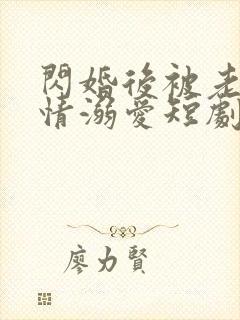 閃婚後被老
情溺愛短劇
廖力賢